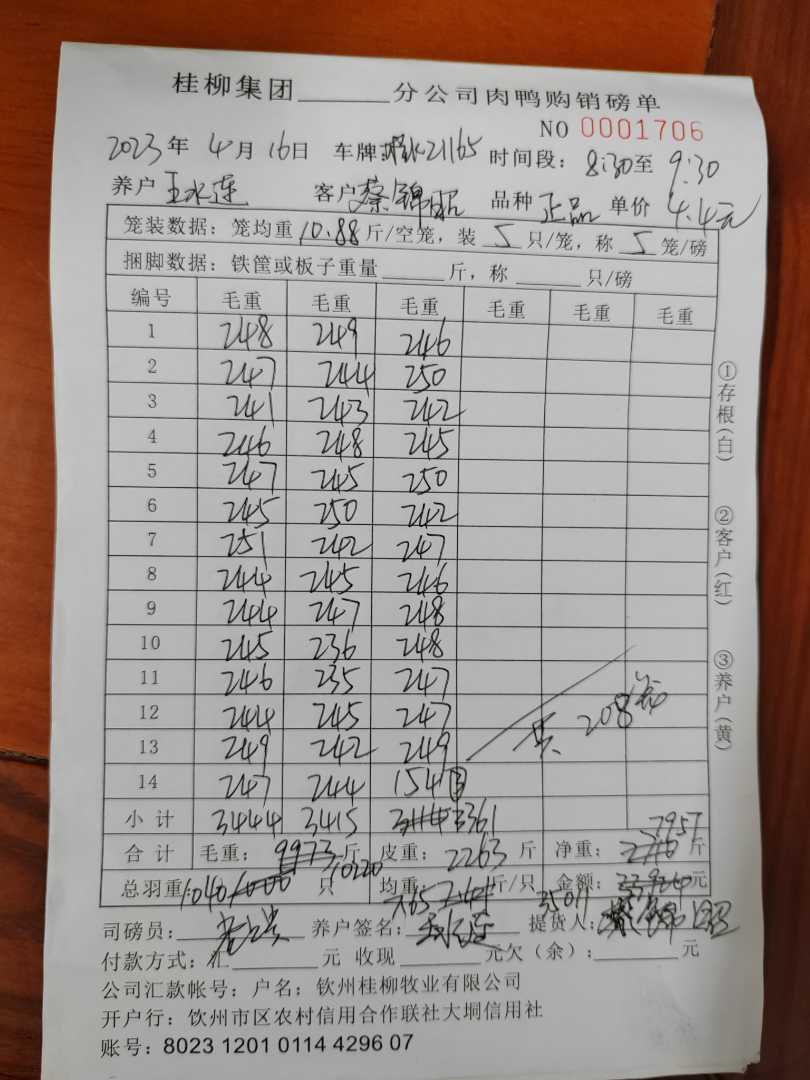 桂柳集团______分公司肉鸭购销磅单
NO 0001706
2023年 4月 16日 车牌 21165 时间段：8:30至 9:30
养户 王水连 客户 蔡锦昭 品种 正品 单价 4.4元
笼装数据：笼均重 10.88 斤/空笼，装 5 只/笼，称 5 笼/磅
捆脚数据：铁筐或板子重量______斤，称______只/磅
编号 毛重 毛重 毛重 毛重 毛重 毛重
1 248 249 246
2 247 244 250
3 241 243 242
4 246 248 245
5 247 245 250
6 245 250 242
7 251 242 247
8 244 245 246
9 244 247 248
10 245 236 248
11 246 235 247
12 244 245 247
13 249 242 249
14 247 244 154 ③
共 208 笼
小计 3444 3415 3361
合计 毛重：9973 10220 斤 皮重：2263 斤 净重：7957 斤
总羽重 1040 只 均重：7.65 斤/只 金额：35011 元
司磅员： 养户签名：王水连 提货人：蔡锦昭
付款方式：汇______元 收现______元欠（余）：______元
公司汇款帐号：户名：钦州桂柳牧业有限公司
开户行：饮州市区农村信用合作联社大垌信用社
账号：8023 1201 0114 4296 07
①存根（白）
②客户（红）
③养户（黄）